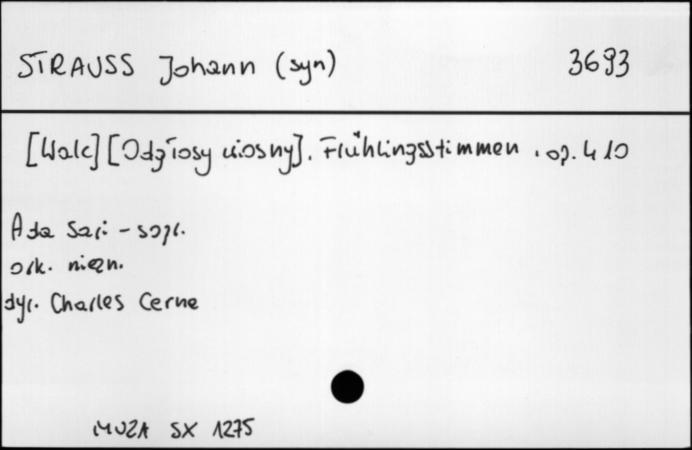 STRAUSS Johann (syn) 3693
[Walc] [Odgłosy wiosny]. Frühlingsstimmen . op. 410
Ada Sari - sopr.
ork. niezn.
dyr. Charles Cerne
MUZA SX 1275